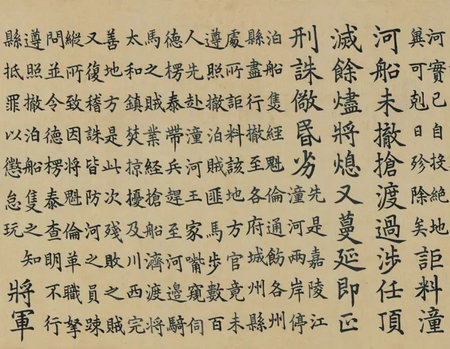 河實已自投絕地
冀可剋日殄除矣
詎料潼
河船未撤搶渡過涉任頂
滅餘燼將熄又蔓延即正
刑誅儆昬劣
先是嘉陵江
潼河兩岸停
泊船隻經魁倫通飭各州
縣盡行撤至各府城州縣
處所詎料該地方官竟未
遵照撤泊賊匪馬步數百
人先赴潼河王家嘴窺伺
德楞泰帶兵趕至河邊騎
馬之賊業經搶船濟渡完
太和鎮焚掠擾及川西將
善地方是此次殘敗之賊
又復稽誅皆防河之員踈
縱所致因將魁倫革職拏
問並令德楞泰查明不行
遵照撤泊船隻之知
縣抵罪以懲怠玩
將軍